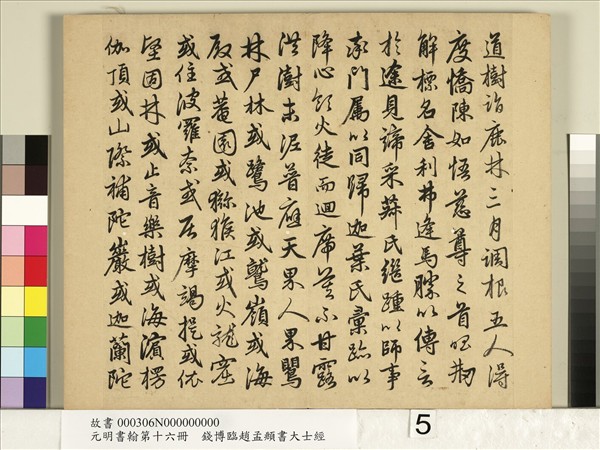 道樹詣鹿林三月調根五人得
度憍陳如悟慈尊之首唱刱
解標名舍利弗逢馬勝以傳言
於途見諦采菽氏繼踵以師事
門属以同歸迦葉氏彙跡以
降心領火徒而迴席莫不甘露
洪澍末泥普應天界人界
林尸林或鷺池或鷲嶺或海
殿或菴園或獼猴江或火龍窟
或住波羅奈或居摩竭提或依
堅固林或止音樂樹或海濱楞
伽頂或山際補陀巖或迦蘭陀
故書 000306N000000000
元明書翰第十六冊 錢博臨趙孟頫書大士經
5